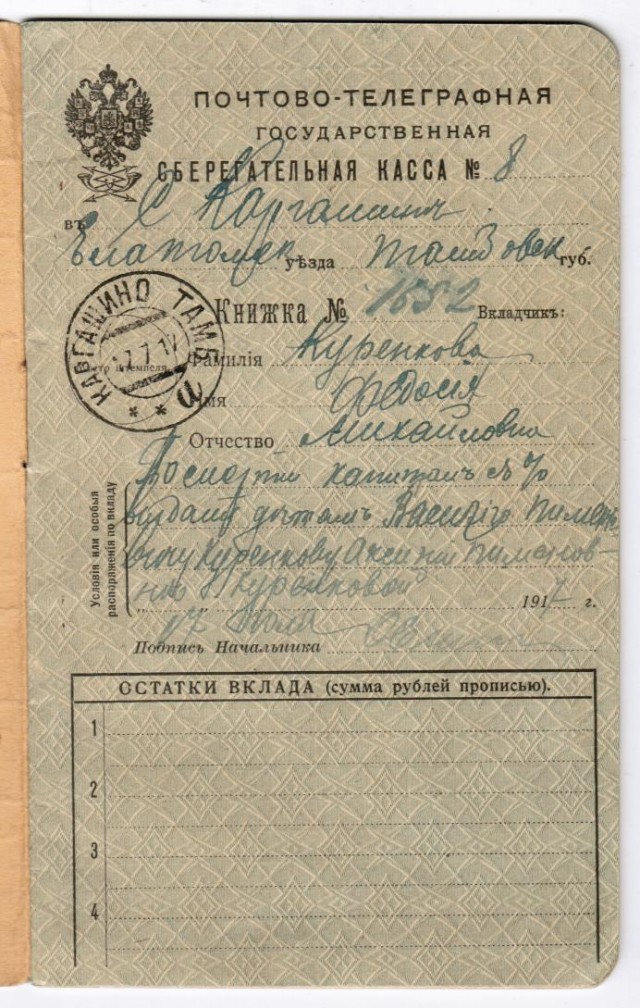 ПОЧТОВО-ТЕЛЕГРАФНАЯ
ГОСУДАРСТВЕННАЯ
СБЕРЕГАТЕЛЬНАЯ КАССА № 8
въ С Каргашинѣ
Елатомск уѣзда Тамбовск губ.
КАРГАШИНО ТАМБ
7.17
Книжка № 1652 Вкладчикъ:
Фамилія Куренкова
Имя Федосія
Отчество Михайловна
Условія или особыя распоряженія по вкладу
По смерти капиталъ съ %
выдать дѣтямъ Василію Пимен
вичу Куренкову Аксиніи Пименов-
нѣ Куренковой
17 Іюля 1917 г.
Подпись Начальника
ОСТАТКИ ВКЛАДА (сумма рублей прописью).
1
2
3
4